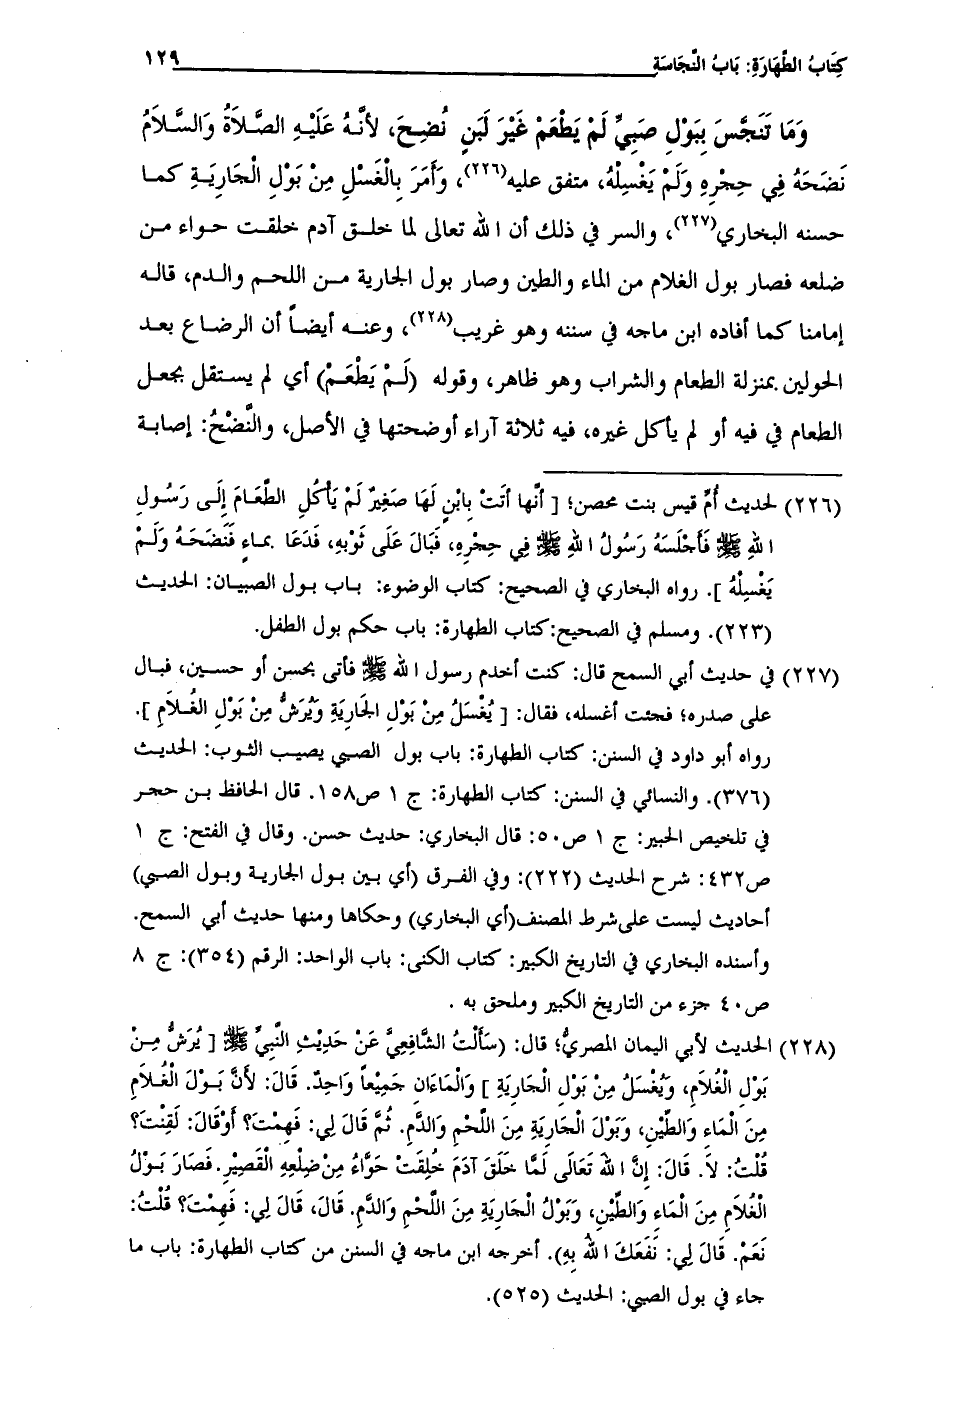 كِتَابُ الطَّهَارَةِ: بَابُ النَّجَاسَةِ ١٢٩
وَمَا تَنَجَّسَ بِبَوْلِ صَبِيٍّ لَمْ يَطْعَمْ غَيْرَ لَبَنٍ نُضِحَ، لأنَّهُ عَلَيْهِ الصَّلاَةُ وَالسَّلاَمُ
نَضَحَهُ فِي حِجْرِهِ وَلَمْ يَغْسِلْهُ، متفق عليه(٢٢٦)، وَأَمَرَ بِالْغَسْلِ مِنْ بَوْلِ الْجَارِيَةِ كما
حسنه البخاري(٢٢٧)، والسر في ذلك أن الله تعالى لما خلق آدم خلقت حواء من
ضلعه فصار بول الغلام من الماء والطين وصار بول الجارية من اللحم والدم، قاله
إمامنا كما أفاده ابن ماجه في سننه وهو غريب(٢٢٨)، وعنه أيضاً أن الرضاع بعد
الحولين بمنزلة الطعام والشراب وهو ظاهر، وقوله (لَمْ يَطْعَمْ) أي لم يستقل بجعل
الطعام في فيه أو لم يأكل غيره، فيه ثلاثة آراء أوضحتها في الأصل، والنَّضْحُ: إصابة
(٢٢٦) لحديث أُمِّ قيس بنت محصن؛ [ أنَّها أتَتْ بِابْنٍ لَهَا صَغِيْرٌ لَمْ يَأْكُلِ الطَّعَامَ إِلَى رَسُولِ
اللهِ ﷺ فَأَجْلَسَهُ رَسُولُ اللهِ ﷺ فِي حِجْرِهِ، فَبَالَ عَلَى ثَوْبِهِ، فَدَعَا بماءٍ فَنَضَحَهُ وَلَمْ
يَغْسِلْهُ ]. رواه البخاري في الصحيح: كتاب الوضوء: باب بول الصبيان: الحديث
(٢٢٣). ومسلم في الصحيح:كتاب الطهارة: باب حكم بول الطفل.
(٢٢٧) في حديث أبي السمح قال: كنت أخدم رسول الله ﷺ فأتى بحسن أو حسين، فبال
على صدره؛ فجئت أغسله، فقال: [ يُغْسَلُ مِنْ بَوْلِ الجَارِيَةِ وَيُرَشُّ مِنْ بَوْلِ الغُلاَمِ ].
رواه أبو داود في السنن: كتاب الطهارة: باب بول الصبي يصيب الثوب: الحديث
(٣٧٦). والنسائي في السنن: كتاب الطهارة: ج ١ ص١٥٨. قال الحافظ بن حجر
في تلخيص الحبير: ج ١ ص٥٠: قال البخاري: حديث حسن. وقال في الفتح: ج ١
ص٤٣٢: شرح الحديث (٢٢٢): وفي الفرق (أي بين بول الجارية وبول الصبي)
أحاديث ليست على شرط المصنف(أي البخاري) وحكاها ومنها حديث أبي السمح.
وأسنده البخاري في التاريخ الكبير: كتاب الكنى: باب الواحد: الرقم (٣٥٤): ج ٨
ص٤٠ جزء من التاريخ الكبير وملحق به .
(٢٢٨) الحديث لأبي اليمان المصريُّ؛ قال: (سَأَلْتُ الشَّافِعِيَّ عَنْ حَدِيْثِ النَّبِيِّ ﷺ [ يُرَشُّ مِنْ
بَوْلِ الْغُلاَمِ، وَيُغْسَلُ مِنْ بَوْلِ الْجَارِيَةِ ] وَالْمَاءَانِ جَمِيْعاً وَاحِدٌ. قَالَ: لأَنَّ بَوْلَ الْغُلاَمِ
مِنَ الْمَاءِ وَالطِّيْنِ، وَبَوْلَ الْجَارِيَةِ مِنَ اللَّحْمِ وَالدَّمِ. ثُمَّ قَالَ لِي: فَهِمْتَ؟ أَوْقَالَ: لَقِنْتَ؟
قُلْتُ: لاَ. قَالَ: إِنَّ اللهَ تَعَالَى لَمَّا خَلَقَ آدَمَ خُلِقَتْ حَوَّاءُ مِنْ ضِلْعِهِ الْقَصِيْرِ. فَصَارَ بَوْلُ
الْغُلاَمِ مِنَ الْمَاءِ وَالطِّيْنِ، وَبَوْلُ الْجَارِيَةِ مِنَ اللَّحْمِ وَالدَّمِ. قَالَ، قَالَ لِي: فَهِمْتَ؟ قُلْتُ:
نَعَمْ. قَالَ لِي: نَفَعَكَ اللهُ بِهِ). أخرجه ابن ماجه في السنن من كتاب الطهارة: باب ما
جاء في بول الصبي: الحديث (٥٢٥).